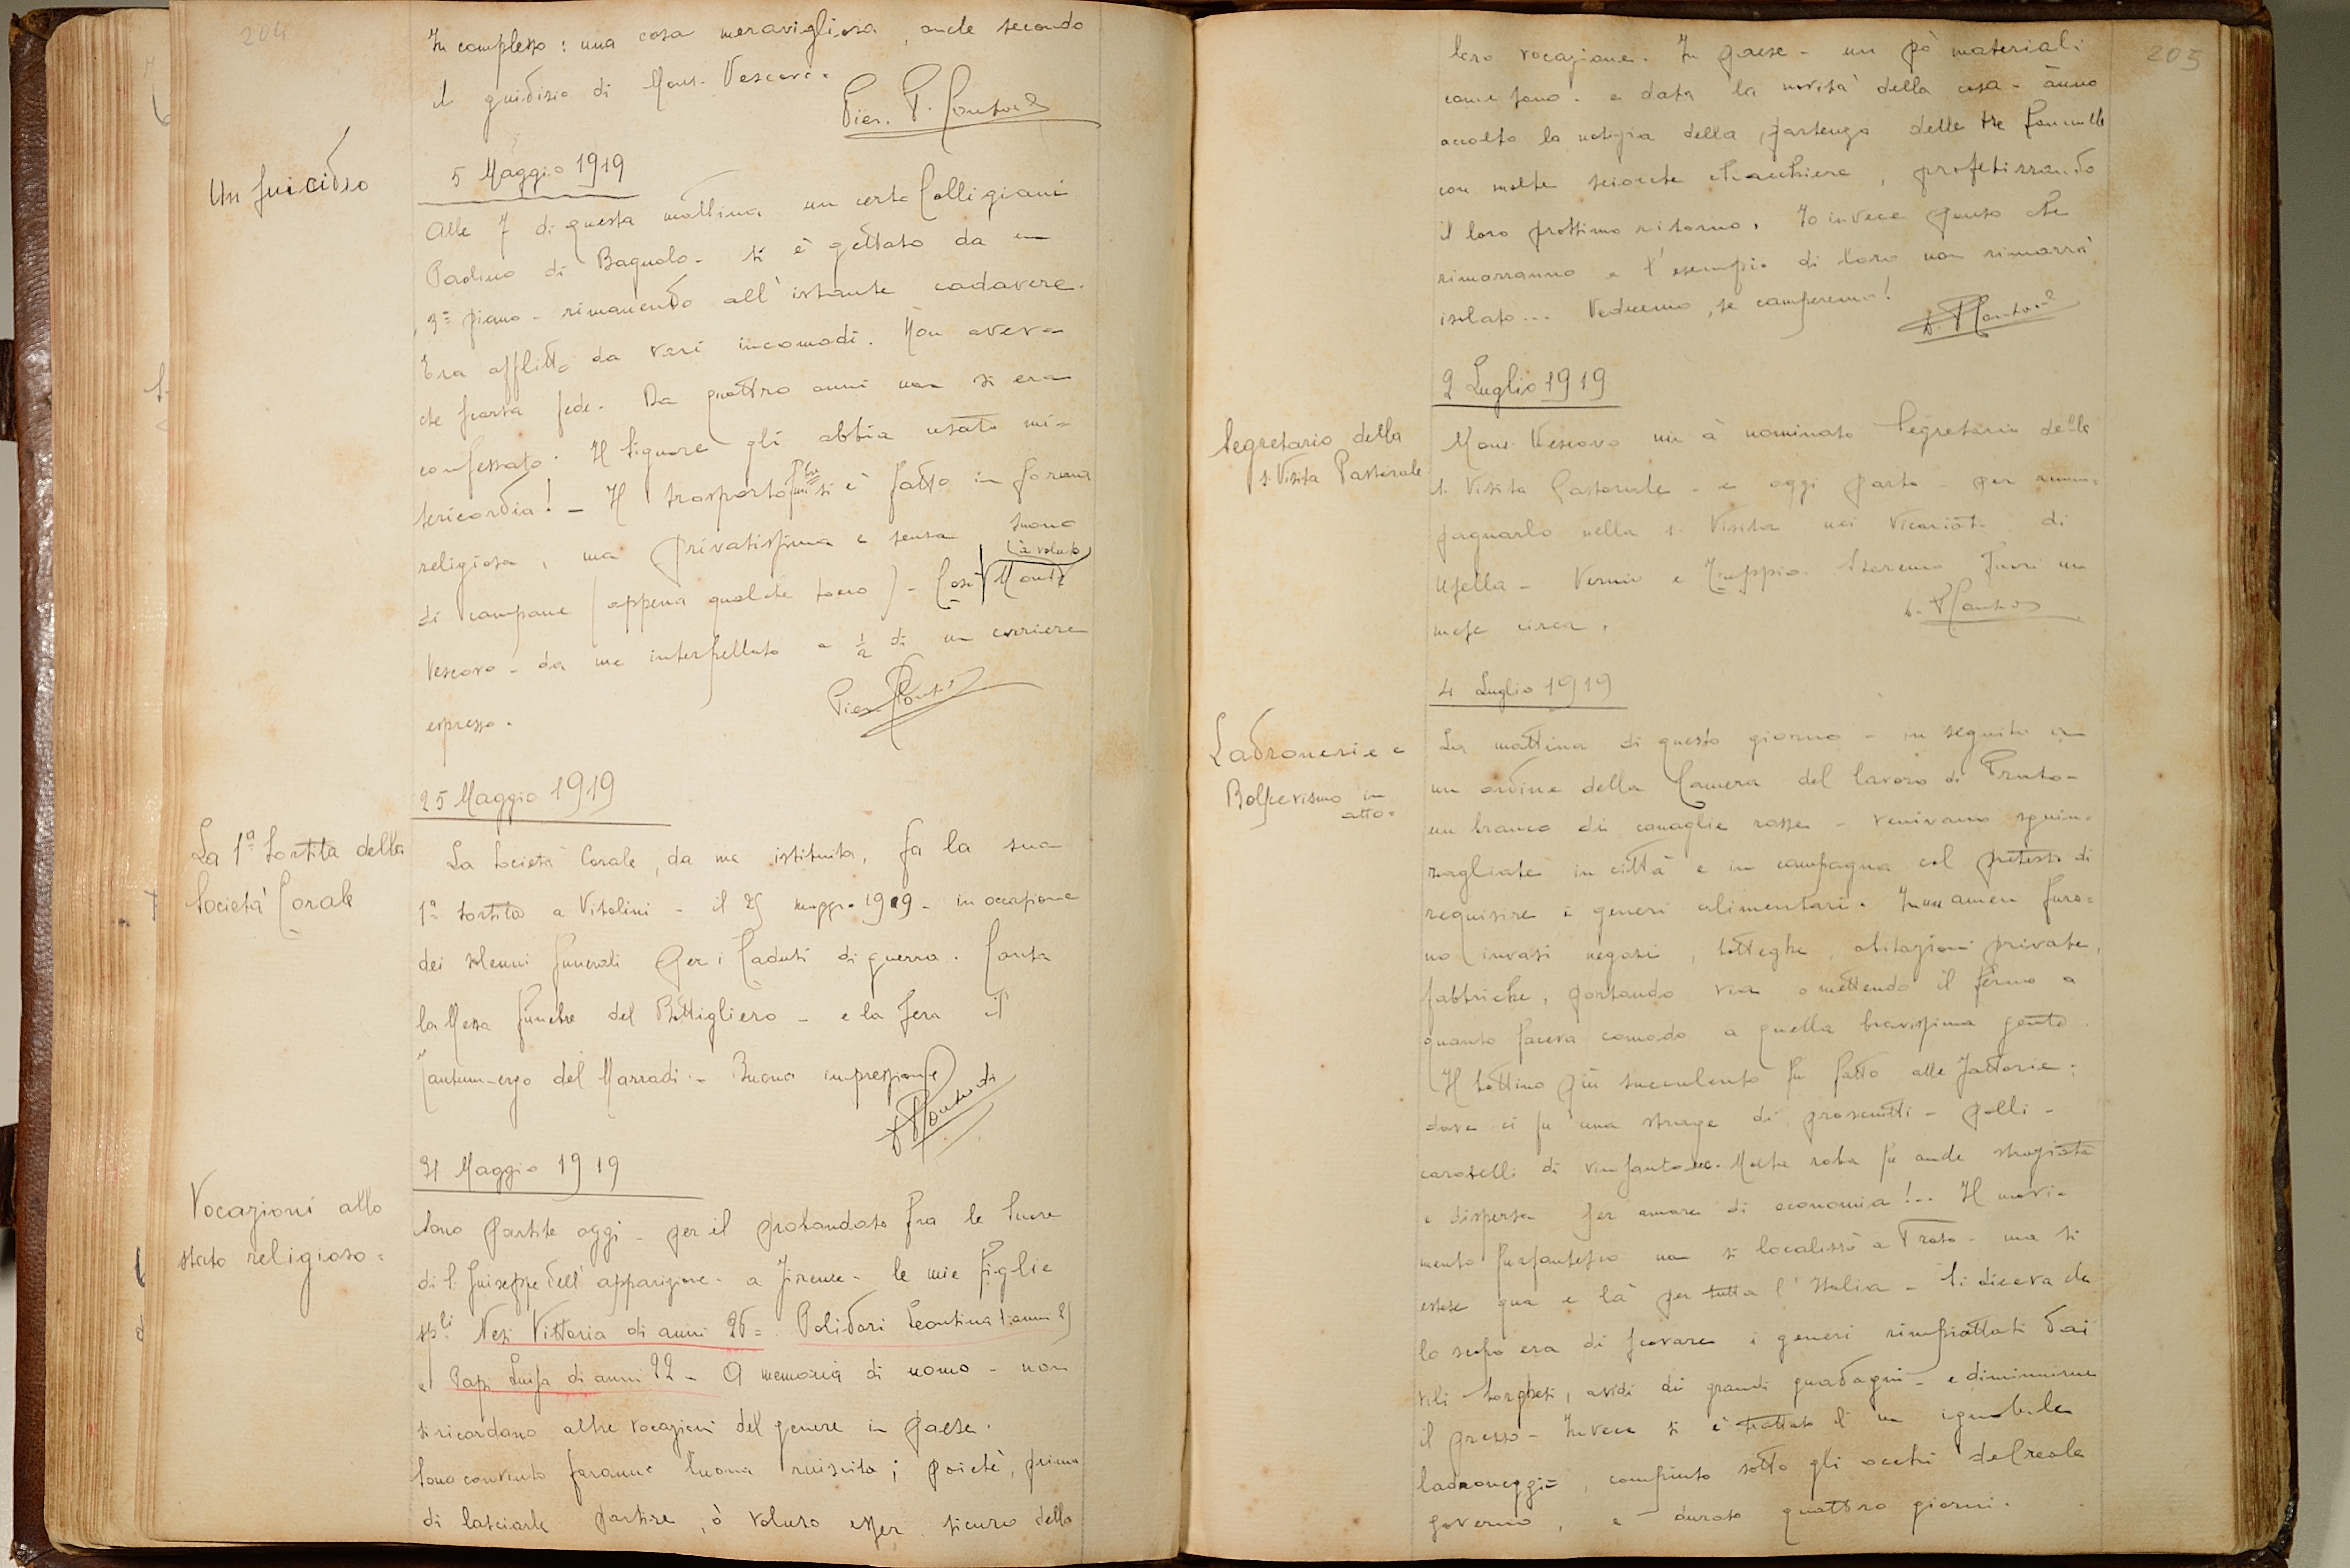 204
In complesso: una cosa meravigliosa, anche secondo
il giudizio di Mons. Vescovo.
Pier. P.
Un suicidio
5 Maggio 1919
Alle 7 di questa mattina un certo Colligiani
Paolino di Bagnolo - si è gettato da un
3º piano - rimanendo all'istante cadavere.
Era afflitto da vari incomodi. Non aveva
che scarsa fede. Da quattro anni non si era
confessato. Il Signore gli abbia usato mi-
sericordia! - Il trasporto si è fatto in forma
religiosa, ma privatissima e senza suono
di campane (appena qualche tocco) - Così à voluto Mons.
Vescovo - da me interpellato a ½ di un corriere
espresso.
Pier.
25 Maggio 1919
La 1ª sortita della
Società Corale
La Società Corale, da me istituita, fa la sua
1ª sortita a Vitolini - il 25 magg. 1919 - in occasione
dei solenni funerali per i Caduti di guerra. Canta
la Messa funebre del Bottigliero - e la sera il
Tantum-ergo del Marradi - Buona impressione
31 Maggio 1919
Vocazioni allo
stato religioso =
Sono partite oggi - per il probandato fra le Suore
di S. Giuseppe dell'apparizione - a Firenze - le mie figlie
sp.li Nesi Vittoria di anni 26 = Polidori Leontina d'anni 25
e Papi Luisa di anni 22 - A memoria di uomo - non
si ricordano altre vocazioni del genere in paese.
Sono convinto faranno buona riuscita; poichè, prima
di lasciarle partire, ò voluto esser sicuro della
205
loro vocazione. In paese - un pò materiali
come sono - e data la novità della cosa - ànno
accolto la notizia della partenza delle tre fanciulle
con molte sciocche chiacchiere, profetizzando
il loro prossimo ritorno. Io invece penso che
rimarranno e l'esempio di loro non rimarrà
isolato... Vedremo, se camperemo!
2 Luglio 1919
Segretario della
S. Visita Pastorale
Mons. Vescovo mi à nominato Segretario della
S. Visita Pastorale - e oggi parto - per accom=
pagnarlo nella s. Visita nei Vicariati di
Usella - Vernio e Treppio. Staremo fuori un
mese circa.
4 Luglio 1919
Ladronerie e
Bolscevismo in
atto.
La mattina di questo giorno - in seguito a
un ordine della Camera del lavoro di Prato -
un branco di canaglie rosse - venivano sguin=
zagliate in città e in campagna col pretesto di
requisire i generi alimentari. Immamen furo=
no invasi negozi, botteghe, abitazioni private,
fabbriche, portando via o mettendo il fermo a
quanto faceva comodo a quella bravissima gente.
Il bottino più succulento fu fatto alle fattorie;
dove ci fu una strage di prosciutti - polli -
caratelli di vinsanto ec. Molta roba fu anche straziata
e dispersa per amore di economia!.. Il movi=
mento furfantesco non si localizzò a Prato - ma si
estese qua e là per tutta l'Italia - Si diceva che
lo scopo era di scovare i generi rimpiattati dai
vili borghesi, avidi di grandi guadagni - e diminuirne
il prezzo - Invece si è trattato di un ignobile
ladroneggio, compiuto sotto gli occhi del reale
governo, e durato quattro giorni.